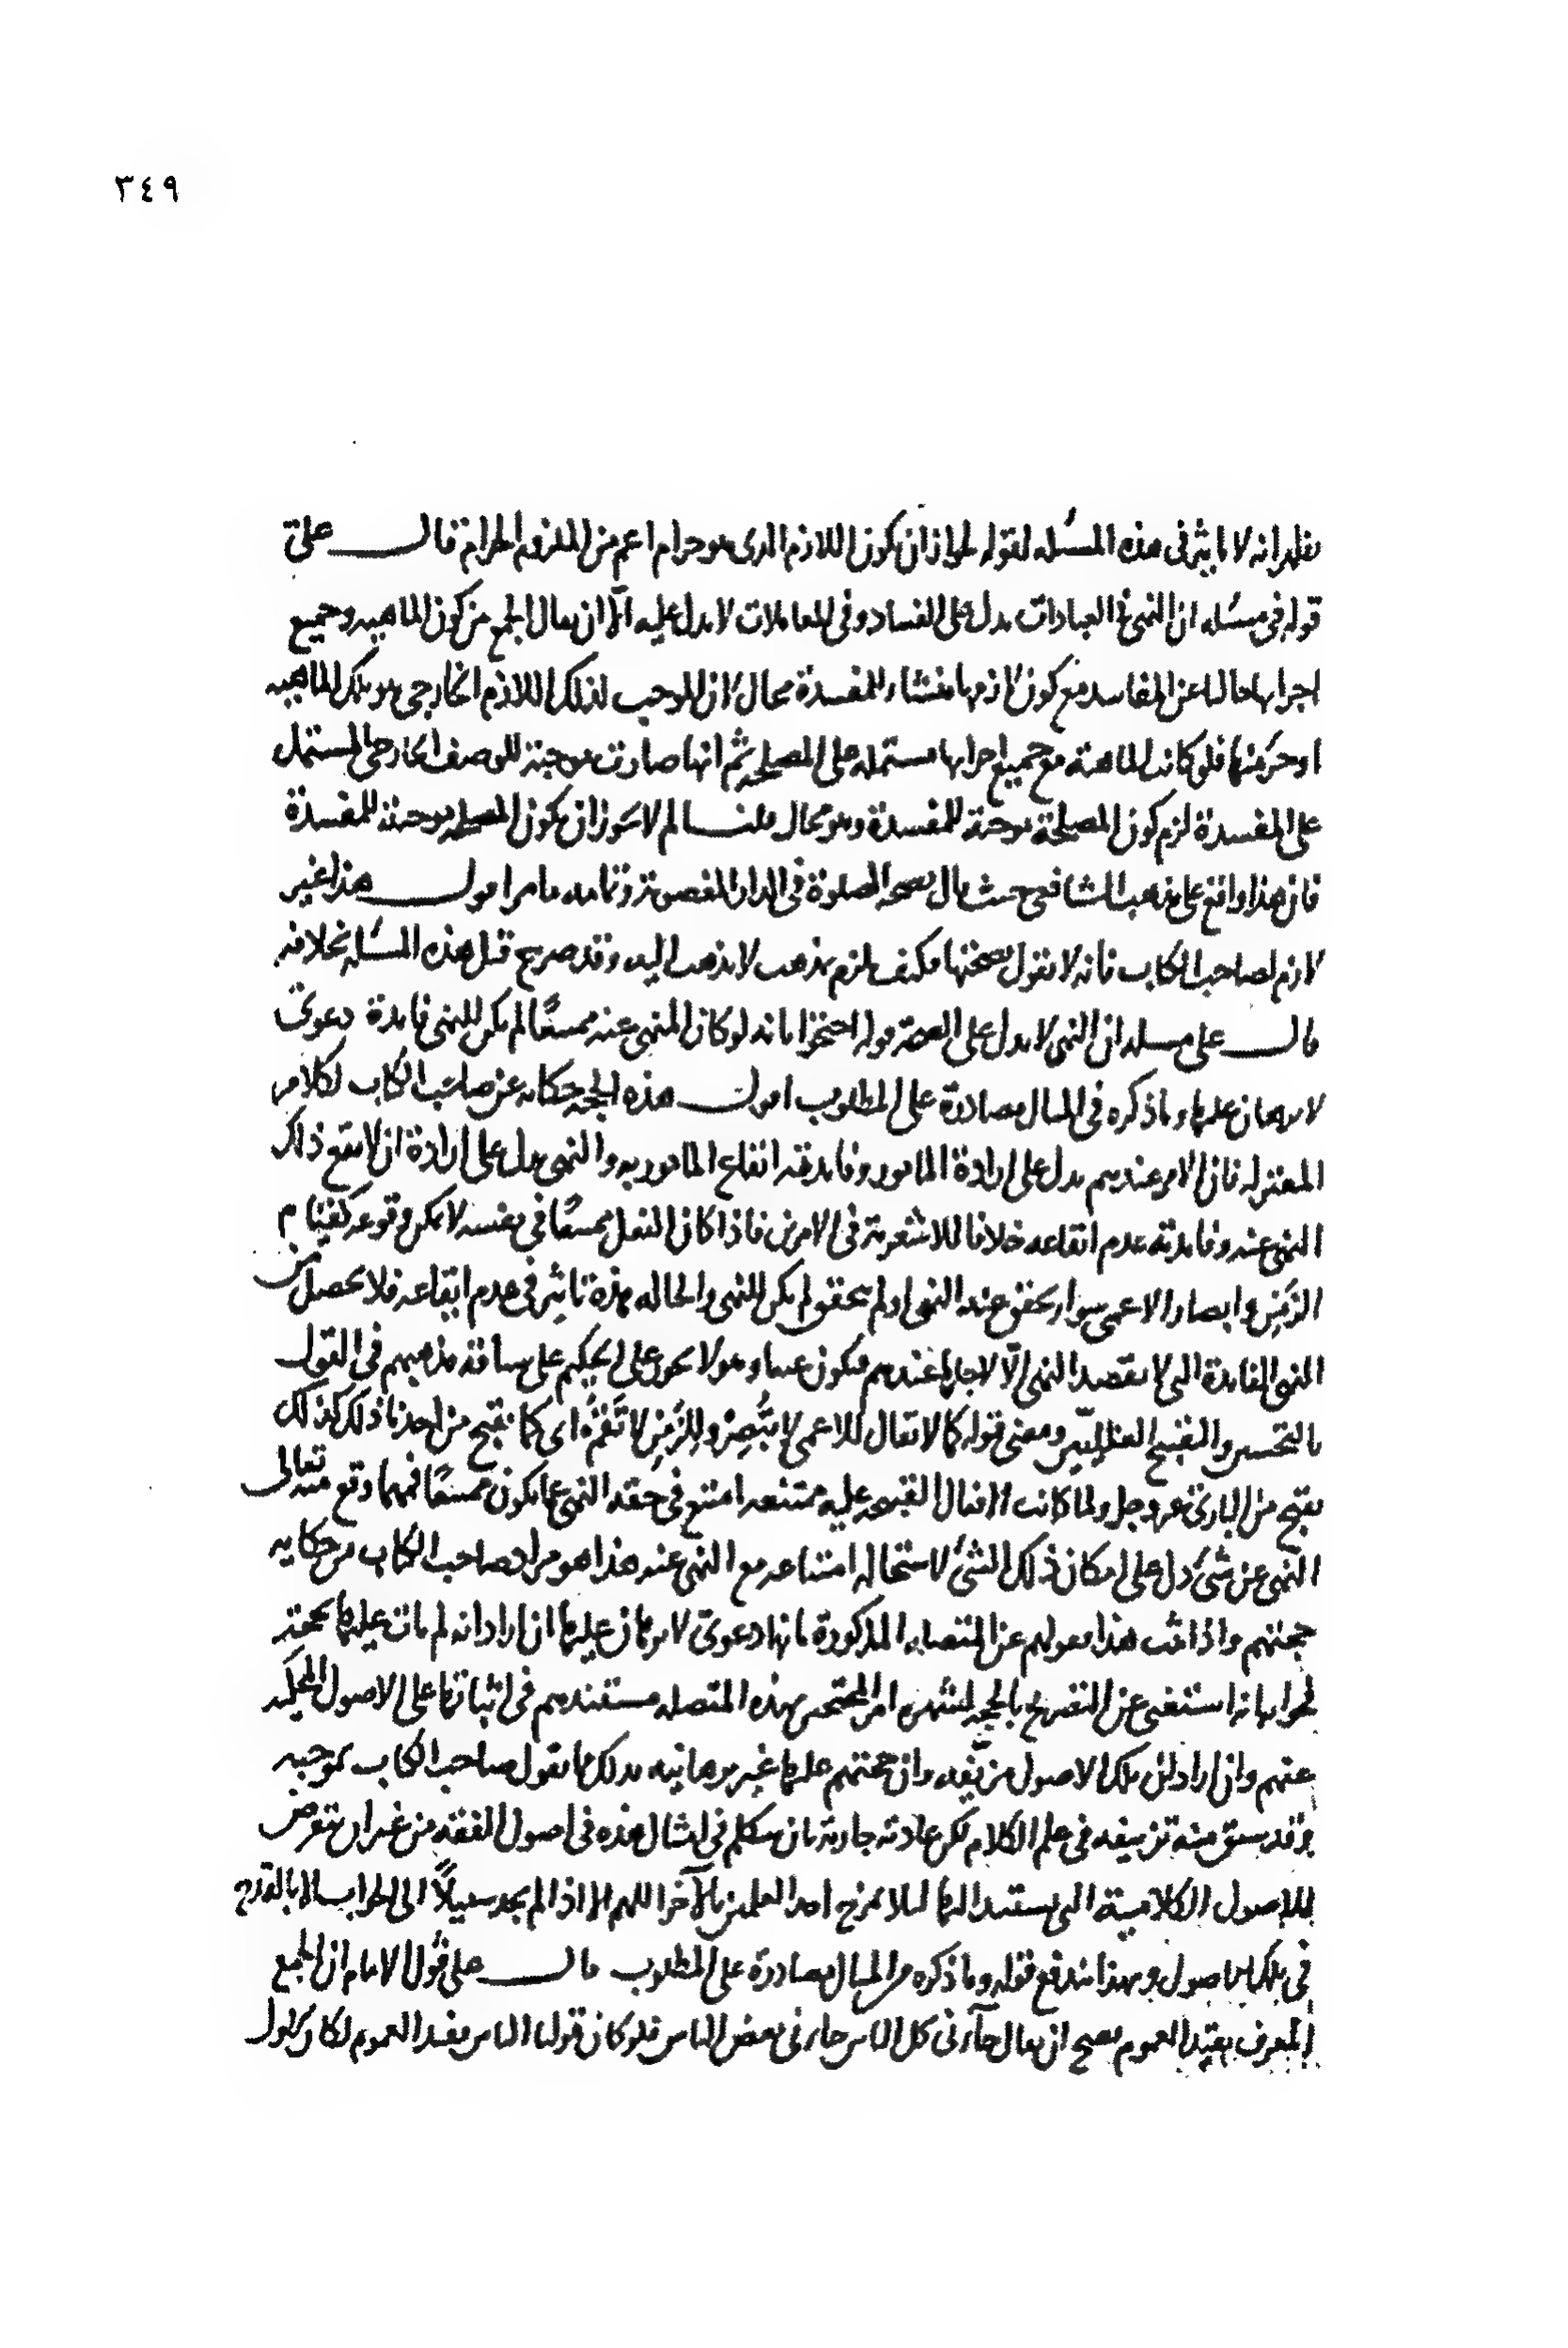 ٣٤٩
يظهر انه لا تاثير فى هذه المسئله لقوله لجواز ان يكون اللازم الذى هو حرام اعم من الملزوم الحرام قال على
قوله فى مسئله ان النهى فى العبادات يدل على الفساد وفى المعاملات لا يدل عليه الا ان يقال الجمع من كون الماهيه وجميع
اجزايها خاليا عن المفاسد مع كون لازمها منشاء للمفسدة محال لان الموجب لذلك اللازم الخارجى هو تلك الماهيه
او جزء منها فلو كانت الماهية مع جميع اجزايها مشتمله على المصلحه ثم انها صارت موجبة للوصف الخارجى المشتمل
على المفسدة لزم كون المصلحة موجبة للمفسدة وهو محال قلنا لم لا يجوز ان يكون المصلحه موجبة للمفسدة
فان هذا واقع على مذهب الشافعى حيث قال بصحه الصلوة فى الدار المغصوبة وتمامه ما مر اقول هذا غير
لازم لصاحب الكتاب فانه لا يقول بصحتها فكيف يلزم بمذهب لا يذهب اليه وقد صرح قبل هذه المسئله بخلافه
قال على مسئله ان النهى لا يدل على الصحة قوله احتجوا بانه لو كان المنهى عنه ممتنعًا لم يكن للنهى فايدة دعوى
لا برهان عليها وما ذكره فى المثال مصادرة على المطلوب اقول هذه الحجه حكايه عن صاحب الكتاب لكلام
المعتزله فان الامر عندهم يدل على ارادة المامور وفايدته ايقاع المامور به والنهى يدل على ارادة ان لا يقع ذلك
النهى عنه وفايدته عدم ايقاعه خلافا للاشعرية فى الامرين فاذا كان الفعل ممتنعًا فى نفسه لا يمكن وقوعه كقيام
الزَمِن وابصار الاعمى سوا تحقق عند النهى او لم يتحقق لم يكن للنهى والحاله هذه تاثير فى عدم ايقاعه فلا يحصل من
النهى الفايدة التى لا يقصد النهى الّا لاجلها عندهم فيكون عبثا وهو لا يجوز على الحكيم على مساقه مذهبهم فى القول
بالتحسين والتقبيح العقليّين ومعنى قوله كما لا يقال للاعمى لا تُبْصِرْ وللزَمِنِ لا تَقُمْ اى كما يقبح من احدنا ذلك كذلك
يقبح من البارئ عز وجل ولما كانت الافعال القبيحه عليه ممتنعه امتنع فى حقه النهى عما يكون ممتنعًا فمهما وقع منه تعالى
النهى عن شئ دل على امكان ذلك الشئ لاستحاله امتناعه مع النهى عنه هذا هو مراد صاحب الكتاب من حكايه
حجتهم واذا ثبت هذا فقولهم عن المتصله المذكورة بانها دعوى لا برهان عليها ان اراد انه لم يات عليها بحجة
فجوابه انه استغنى عن التصريح بالحجه لشهره امر المحتجين بهذه المتصله مستندهم فى اثباتها على الاصول المحكيه
عنهم وان اراد ان تلك الاصول مزيّفه وان حجتهم عليها غير برهانيه فذلك ما يقول صاحب الكتاب بموجبه
وقد سبق منه تزييفه فى علم الكلام لكن عادته جارية بان يتكلم فى امثال هذه فى اصول الفقه من غير ان يتعرض
للاصول الكلامية التى يستند اليها لئلا يمزج احد العلمين بالآخر اللهم الا اذا لم يجد سبيلاً الى الجواب الا بالقدح
فى تلك الاصول وبهذا يندفع قوله وما ذكره من المثال مصادرة على المطلوب قال على قول الامام ان الجمع
المعرف يفيد العموم يصح ان يقال جآءنى كل الناس جاءنى بعض الناس فلو كان قولنا الناس يفيد العموم لكان كقول